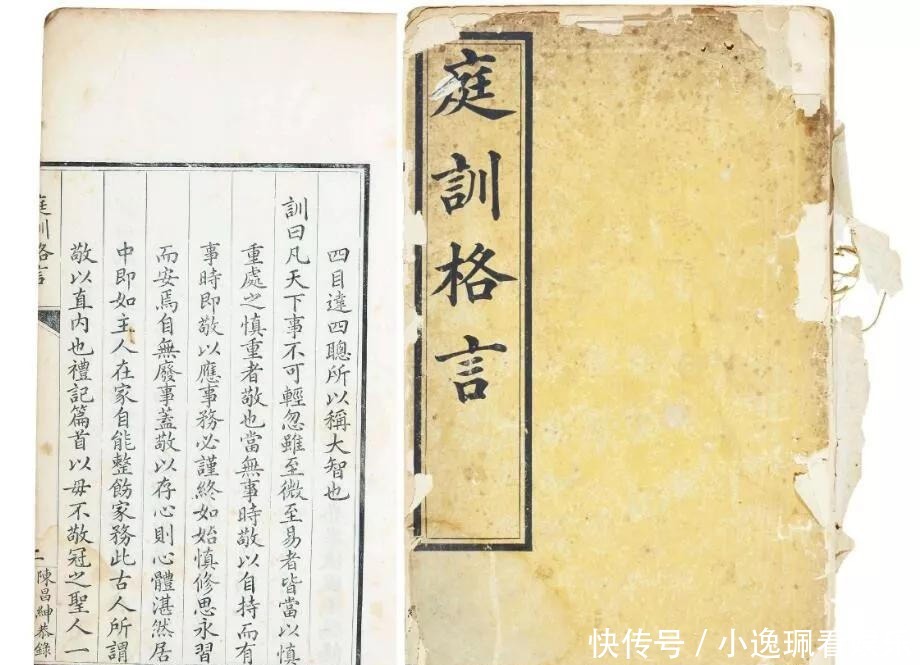 庭訓格言
四目達四聰所以稱大智也
訓曰凡天下事不可輕忽雖至微至易者皆當以慎
重處之慎重者敬也當無事時敬以自持而有
事時即敬以應事務必謹終如始慎修思永習
而安焉自無廢事蓋敬以存心則心體湛然居
中即如主人在家自能整飭家務此古人所謂
敬以直內也禮記篇首以毋不敬冠之聖人一
庭訓格言
二
陳昌紳恭錄
快传号 / 小逸珮看